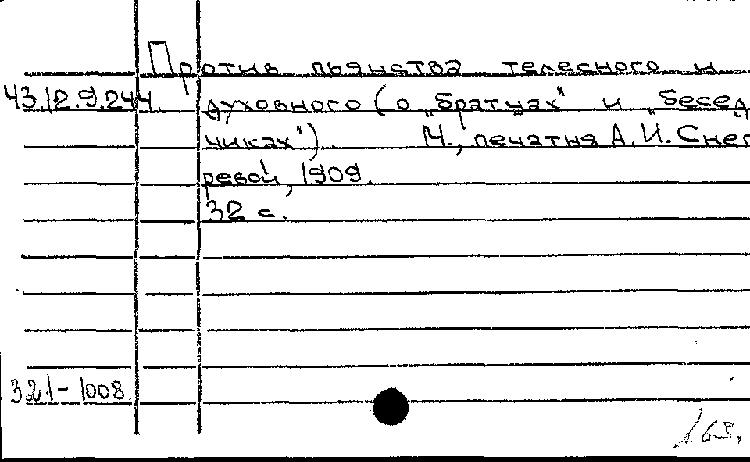 Против пьянства телесного и
43.12.9.244. духовного (о „братцах" и „бесед
чиках"). М., печатня А. И. Снег
ревой, 1909.
32 с.
321-1008
163.